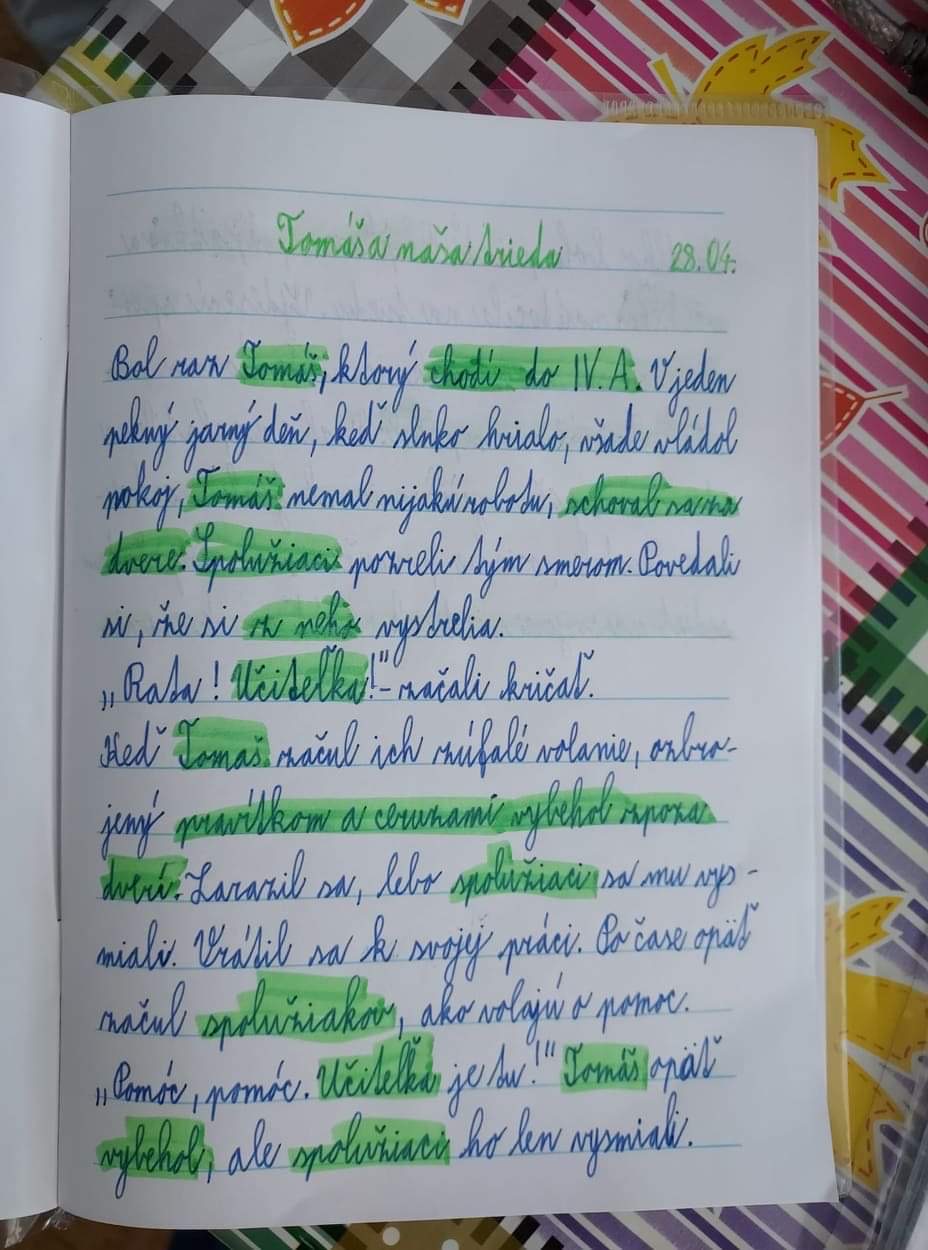 Tomáš a naša trieda 28.04.
Bol raz Tomáš, ktorý chodí do IV. A. V jeden
pekný jarný deň, keď slnko hrialo, všade vládol
pokoj, Tomáš nemal nijakú robotu, schoval sa na
dvere. Spolužiaci pozreli tým smerom. Povedali
si, že si z neho vystrelia.
„Rata! Učiteľka!" - začali kričať.
Keď Tomaš začul ich zúfalé volanie, ozbro-
jený pravítkom a ceruzami vybehol zpoza
dverí. Zarazil sa, lebo spolužiaci sa mu vys-
miali. Vrátil sa k svojej práci. Po čase opäť
začul spolužiakov, ako volajú o pomoc.
„Pomóc, pomóc. Učiteľka je tu!" Tomáš opäť
vybehol, ale spolužiaci ho len vysmiali.